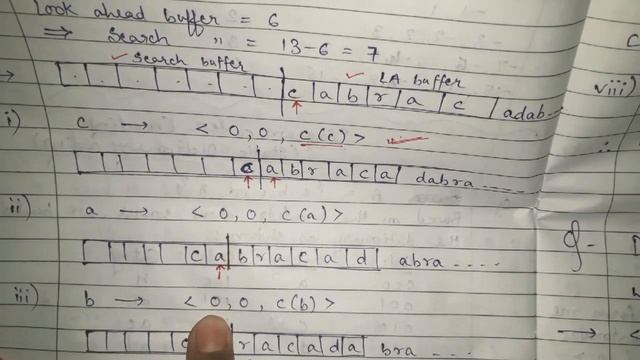 Look ahead buffer = 6
⇒ Search " = 13-6 = 7
Search buffer LA buffer
c a b r a c adab...
i) c → < 0, 0, c(c) >
c a b r a c a dabra ....
ii) a → < 0, 0, c(a) >
c a b r a c a d abra ....
iii) b → < 0, 0, c(b) >
r a c a d a bra ...
viii)